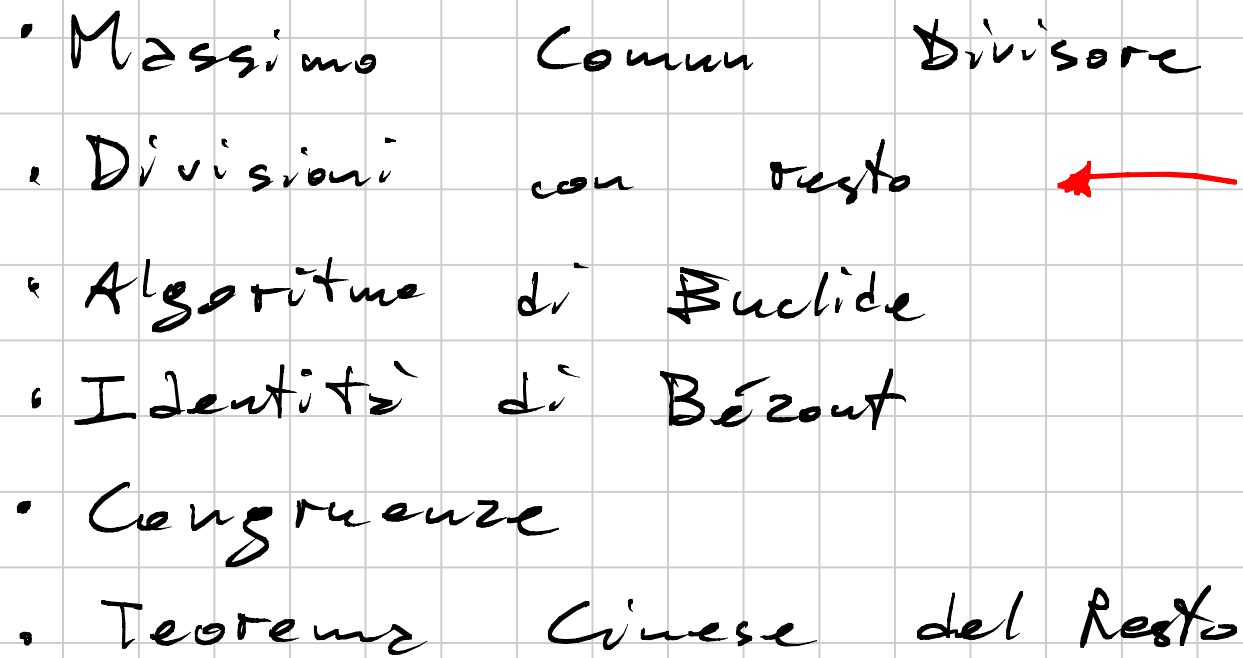 · Massimo Comun Divisore
· Divisioni con resto
· Algoritmo di Euclide
· Identità di Bézout
· Congruenze
· Teorema Cinese del Resto